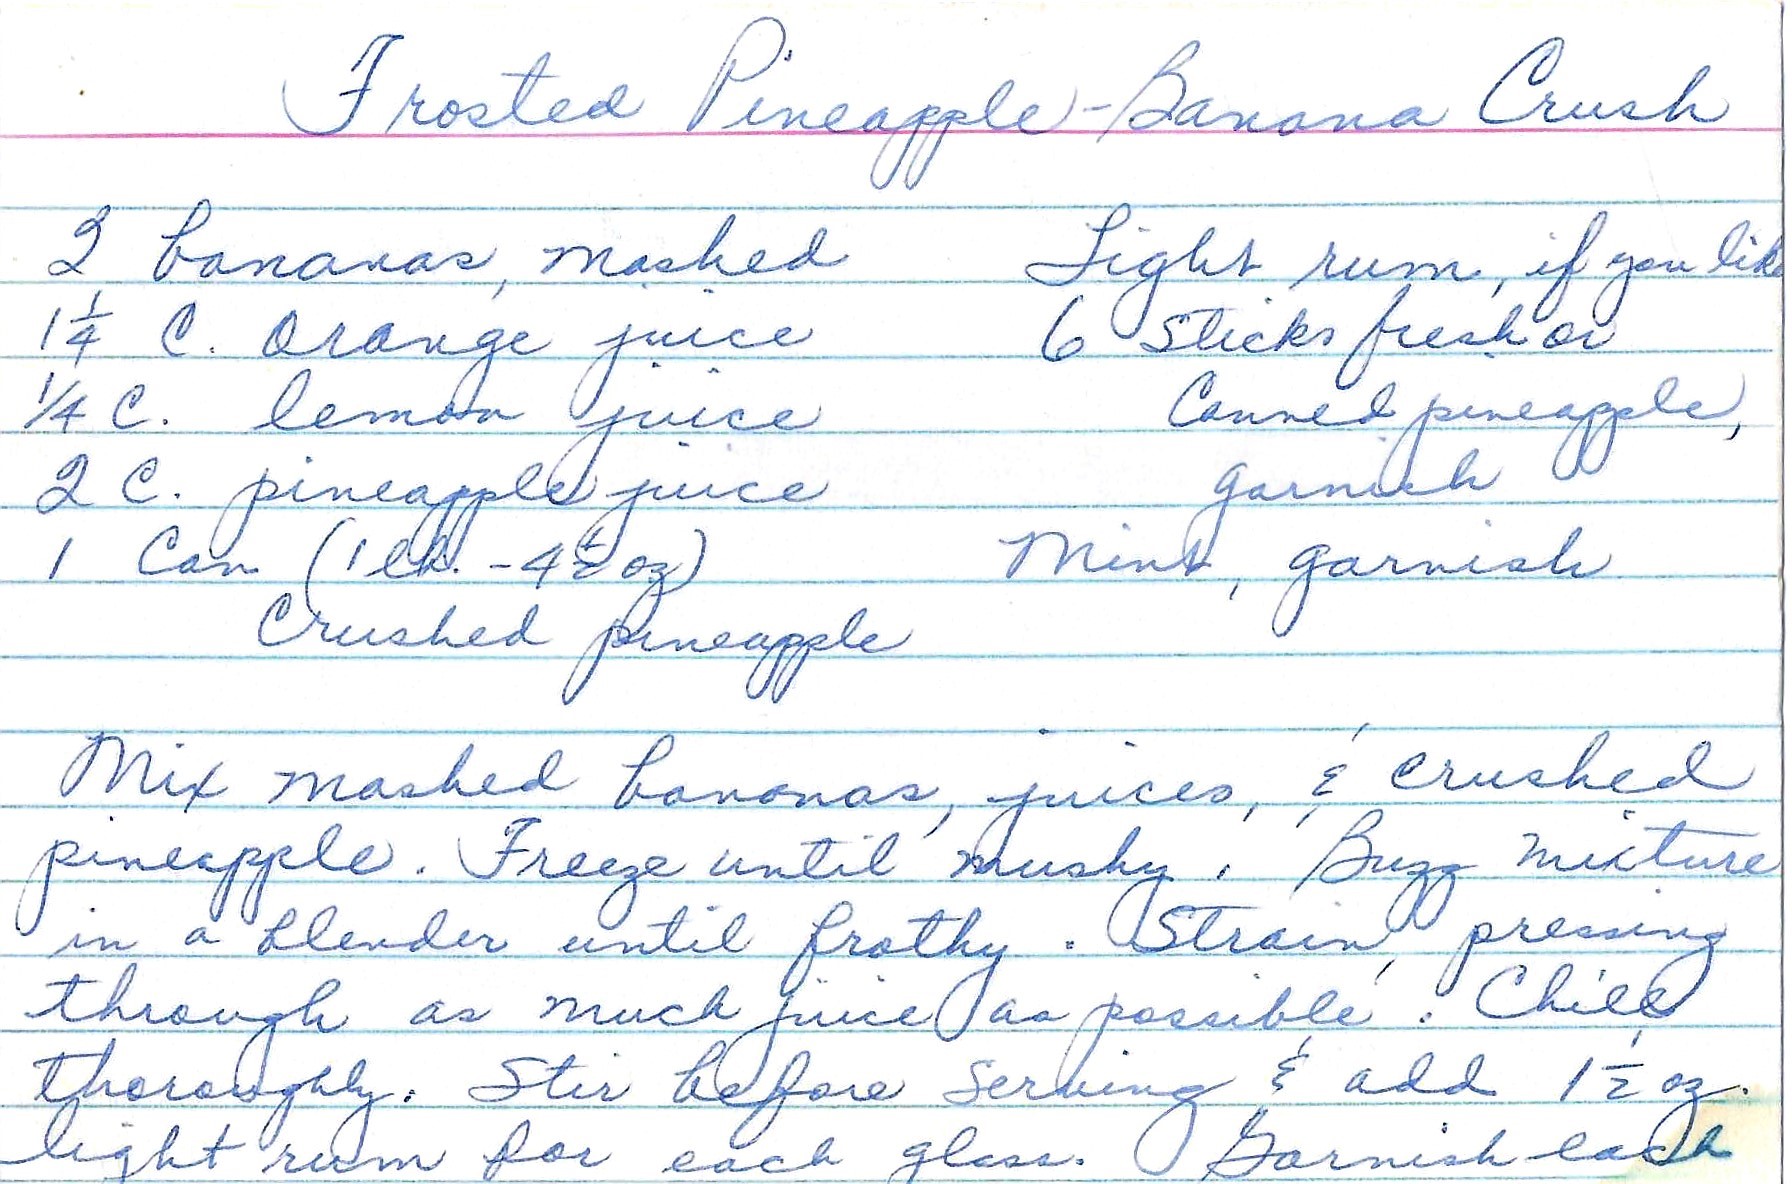 Frosted Pineapple-Banana Crush
2 bananas, mashed
1 1/4 C. orange juice
1/4 C. lemon juice
2 C. pineapple juice
1 Can (1 lb. - 4 1/2 oz)
Crushed pineapple
Light rum, if you like
6 Sticks fresh or
Canned pineapple,
garnish
Mint, garnish
Mix mashed bananas, juices, & crushed
pineapple. Freeze until mushy. Buzz mixture
in a blender until frothy. Strain, pressing
through as much juice as possible. Chill
thoroughly. Stir before serving & add 1 1/2 oz.
light rum for each glass. Garnish each